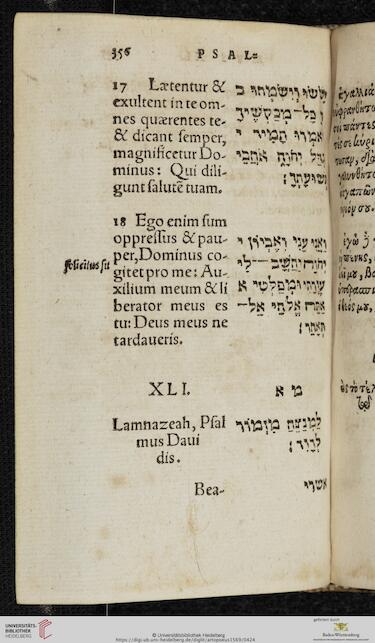 356 PSAL=
17 Lætentur &
exultent in te om-
nes quærentes te-
& dicant semper,
magnificetur Do-
minus: Qui dili-
gunt salutē tuam.
יששו וישמחו ב
כל־מבקשיך
יאמרו תמיד י
יגדל יהוה אהבי
תשועתך:
18 Ego enim sum
oppressus & pau-
per, Dominus co-
gitet pro me: Au-
xilium meum & li
berator meus es
tu: Deus meus ne
tardaueris.
solicitus sit
ואני עני ואביון י
יהוה יחשב־לי
עזרתי ומפלטי א
אתה אלהי אל־
תאחר:
XLI.
מא
Lamnazeah, Psal
mus Daui
dis.
למנצח מזמור
לדוד:
Bea-
אשרי
UNIVERSITÄTS-
BIBLIOTHEK
HEIDELBERG
© Universitätsbibliothek Heidelberg
https://digi.ub.uni-heidelberg.de/diglit/artopoeus1569/0424
gefördert durch
Baden-Württemberg